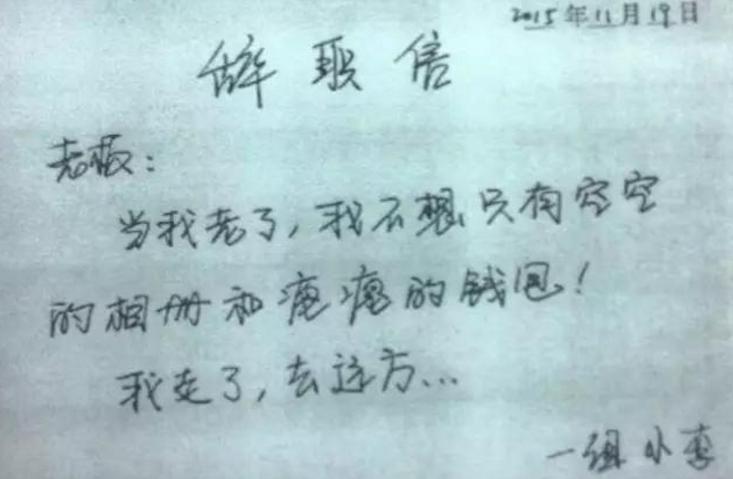 2015年11月19日
辞职信
老板：
当我老了，我不想只有空空
的相册和瘪瘪的钱包！
我走了，去远方...
一组小李